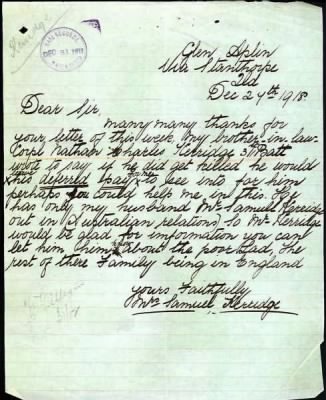 DEC 31 1918
Glen Aplin
Via Stanthorpe
Qld
Dec 27th 1918
Dear Sir
many many thanks for
your letter of this week my brother-in-law
Corpl Nathan Charles Kerridge
wrote to say if he did get killed he would
deferred pay to see into for him
perhaps you could help me in this. He
has only my husband Mr Samuel Kerridge
out in Australian relations So Mr Kerridge
would be glad for information you can
let him know about the poor lad, the
rest of there Family being in England
yours Faithfully
Mrs Samuel Kerridge